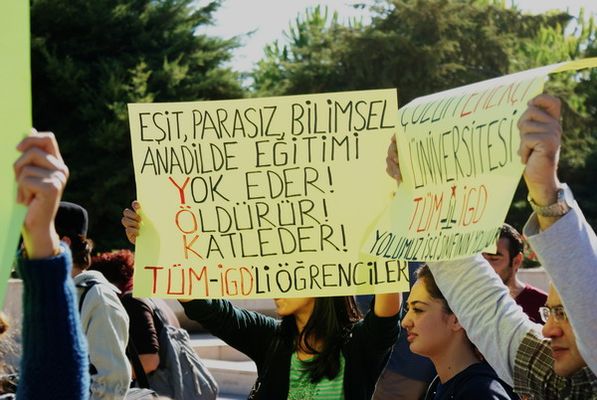 EŞİT, PARASIZ, BİLİMSEL
ANADİLDE EĞİTİMİ
YOK EDER!
ÖLDÜRÜR!
KATLEDER!
TÜM-İGD'Lİ ÖĞRENCİLER
ÜNİVERSİTESİ
TÜM-İGD
YOLUMUZ İŞÇİ SINIFININ YOLUDUR